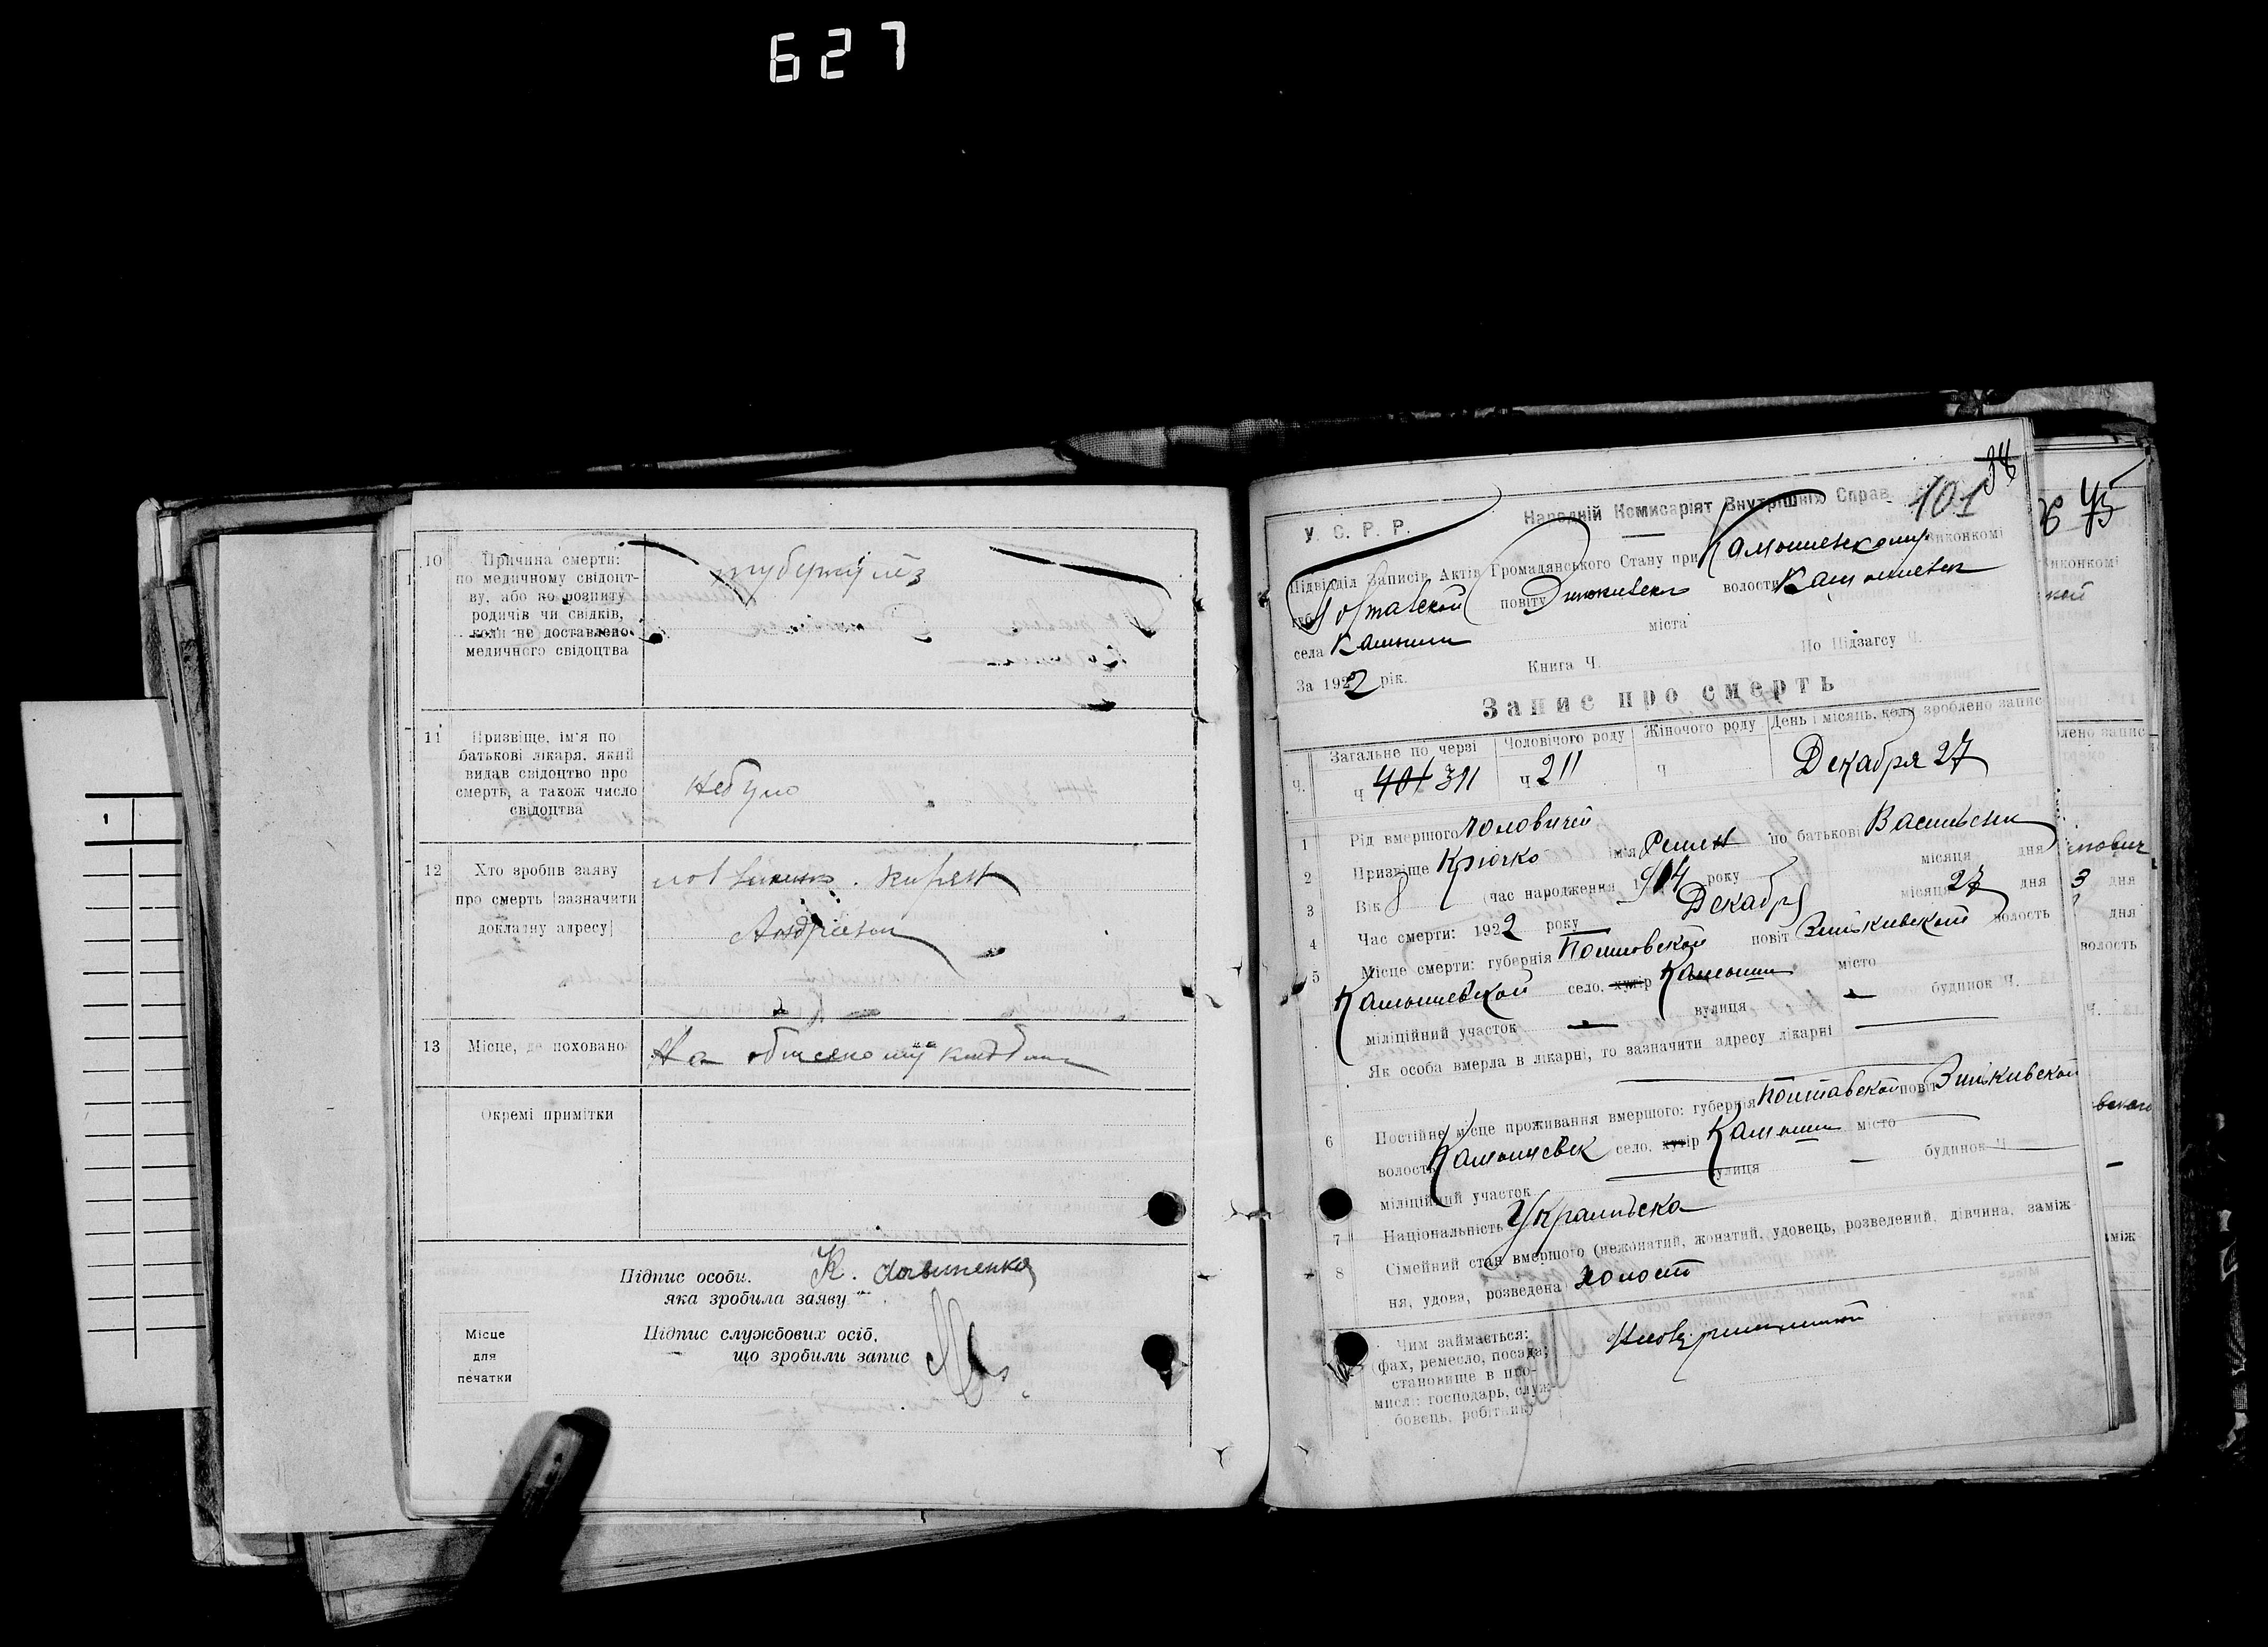 627
10
Причина смерти:
по медичному свідоцт-
ву, або по розпиту
родичів чи свідків,
коли не доставлено
медичного свідоцтва
туберкульоз
11
Призвіще, ім'я по
батькові лікаря, який
видав свідоцтво про
смерть, а також число
свідоцтва
Небуло
12
Хто зробив заяву
про смерть (зазначити
докладну адресу)
13
Місце, де поховано
На
Окремі примітки
Підпис особи,
яка зробила заяву
К.
Підпис службових осіб,
що зробили запис
Місце
для
печатки
1
38
101
У. С. Р. Р.
Народній Комисаріят Внутрішніх Справ
Підвідділ Записів Актів Громадянського Стану при Камышенскому Виконкомі
губ. Полтавской повіту волости Камышевск
села Камыши міста
За 1922 рік. Книга Ч. По Підзагсу Ч.
Запис про смерть
Загальне по черзі Чоловічого роду Жіночого роду День і місяць, коли зроблено запис
Ч. Ч 401 311 Ч 211 Ч Декабря 27
1 Рід вмершого чоловичій
2 Призвіще Крючко ім'я по батькові
3 Вік 8 (час народження 1914 року місяця дня
4 Час смерти: 1922 року Декабря місяця 27 дня
5 Місце смерти: губернія Полтовской повіт Зинькивской волость
Камышевской село, хутір Камыши місто
міліційний участок вулиця будинок Ч.
Як особа вмерла в лікарні, то зазначити адресу лікарні
6 Постійне місце проживання вмершого: губернія Полтавской повіт Зинькивской
волость Камышевск село, хутір Камыши місто
міліційний участок вулиця будинок Ч
7 Національність Украинска
8 Сімейний стан вмершого (нежонатий, жонатий, удовець, розведений, дівчина, заміж-
ня, удова, розведена холост
Чим займається:
(фах, ремесло, посада;
становище в про-
мислі: господарь, служ-
бовець, робітник)
45
Виконкомі
блено запис
3 дня
дня
волость
Ч.
аміж-